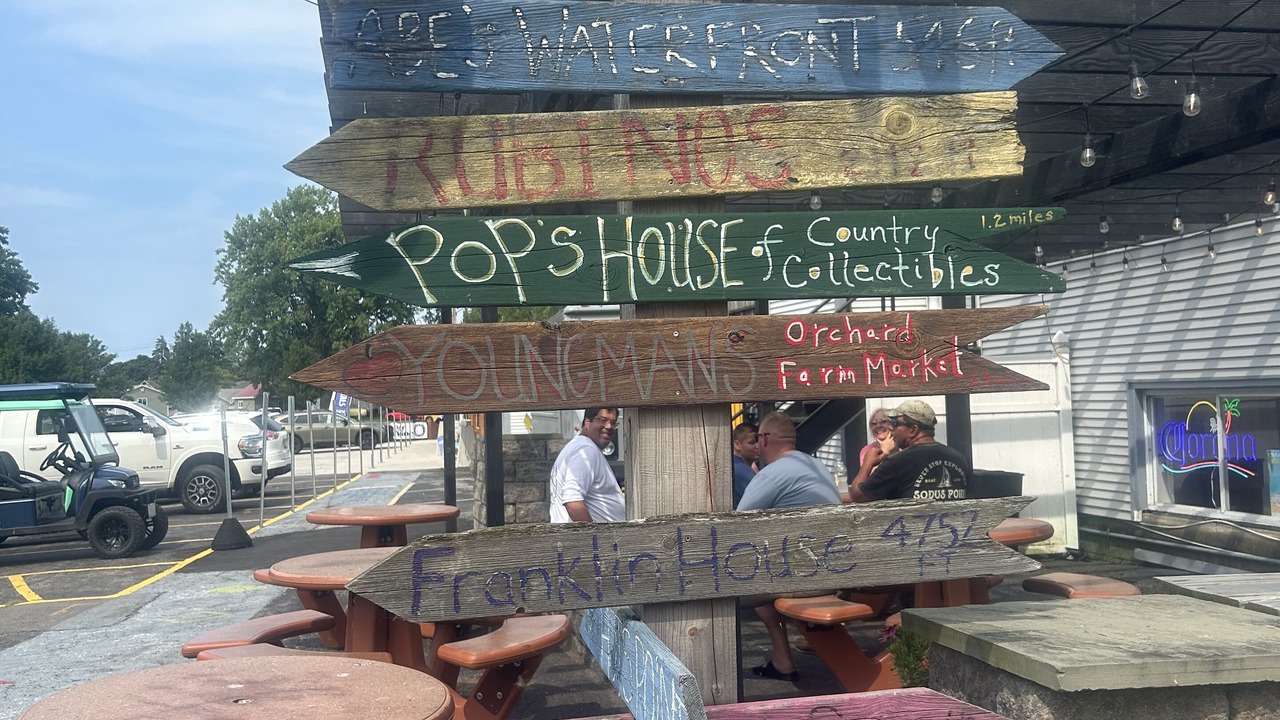 ABE'S WATERFRONT
RUBINOS
POP'S HOUSE of Country Collectibles 1.2 miles
YOUNGMAN'S Orchard Farm Market
Franklin House 4752 FT
Corona
SODUS POINT
RAM